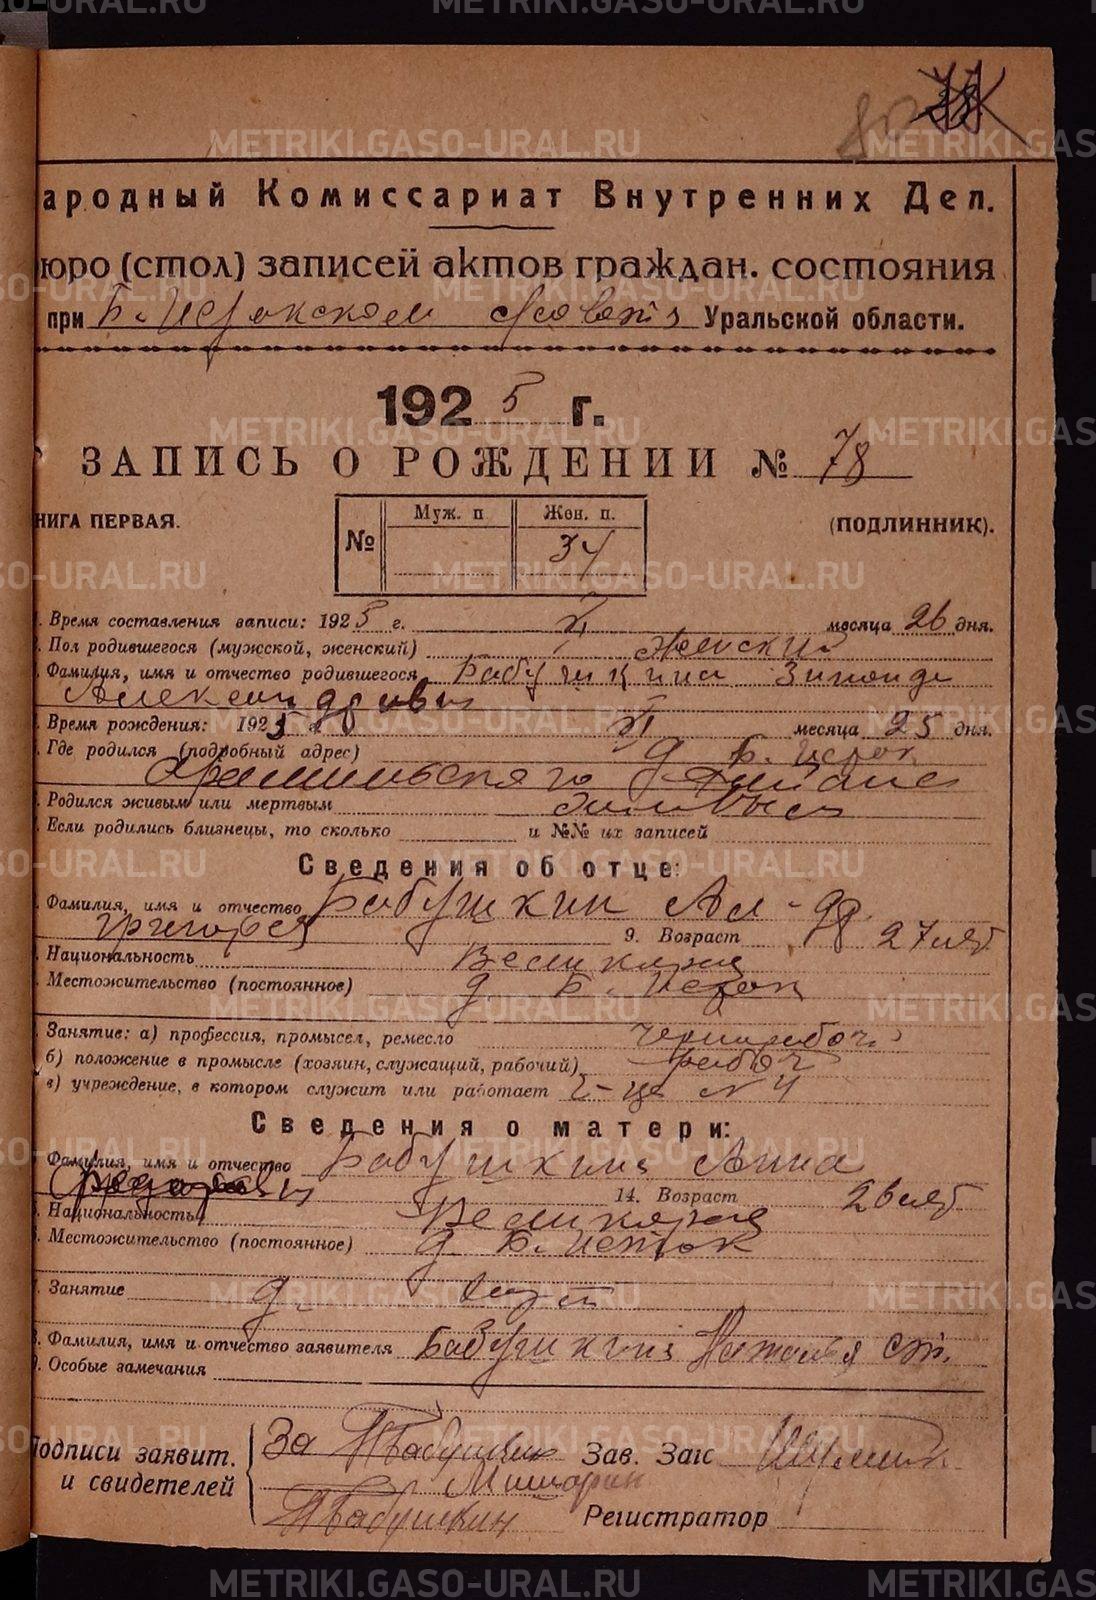 ародный Комиссариат Внутренних Дел.
юро (стол) записей актов граждан. состояния
при Б. Истокском Уральской области.
1925 г.
ЗАПИСЬ О РОЖДЕНИИ № 78
НИГА ПЕРВАЯ. (ПОДЛИННИК).
№ Муж. п Жен. п.
34
Время составления записи: 1925 г. XI месяца 26 дня.
Пол родившегося (мужской, женский) Женский
Фамилия, имя и отчество родившегося Бабушкина Зинаида
Александровна
Время рождения: 1925 г. XI месяца 25 дня.
Где родился (подробный адрес) д Б. Исток
Арамильского района
Родился живым или мертвым живым
Если родились близнецы, то сколько и №№ их записей
Сведения об отце:
Фамилия, имя и отчество Бабушкин Ал-др.
Григорьев 9. Возраст 27 лет
Национальность Великорус
Местожительство (постоянное) д Б. Исток
Занятие: а) профессия, промысел, ремесло чернорабоч.
б) положение в промысле (хозяин, служащий, рабочий) рабоч
в) учреждение, в котором служит или работает
Сведения о матери:
Фамилия, имя и отчество Бабушкина Анна
14. Возраст 26 лет
Национальность Великорус
Местожительство (постоянное) д Б. Исток
Занятие д.
Фамилия, имя и отчество заявителя Бабушкина Наталья
Особые замечания
Подписи заявит. За Бабушкин Зав. Загс
и свидетелей Мишарин
Бабушкин Регистратор
METRIKI.GASO-URAL.RU